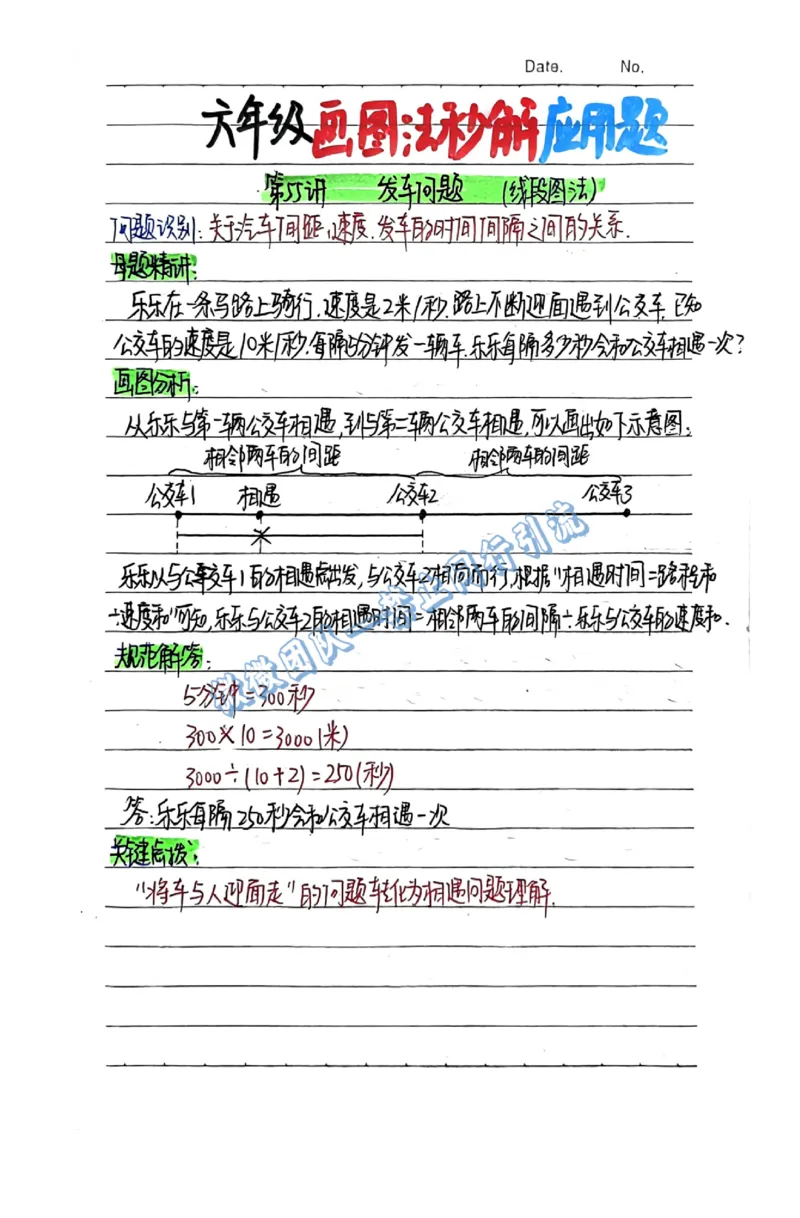 Date. No.
六年级画图法秒解应用题
第55讲 发车问题 (线段图法)
问题识别:关于汽车间距、速度、发车的时间间隔之间的关系.
母题精讲:
乐乐在一条马路上骑行,速度是2米/秒.路上不断迎面遇到公交车,已知
公交车的速度是10米/秒.每隔5分钟发一辆车.乐乐每隔多少秒会和公交车相遇一次?
画图分析:
从乐乐与第一辆公交车相遇,到与第二辆公交车相遇,可以画出如下示意图:
相邻两车的间距 相邻两车的间距
公交车1 相遇 公交车2 公交车3
乐乐以与公交车1的相遇点出发,与公交车2相向而行,根据"相遇时间=路程和
÷速度和"可知,乐乐与公交车2的相遇时间=相邻两车的间隔÷乐乐与公交车的速度和.
规范解答:
5分钟=300秒
300×10=3000(米)
3000÷(10+2)=250(秒)
答:乐乐每隔250秒会和公交车相遇一次
关键点拨:
"将车与人迎面走"的问题转化为相遇问题理解.
微微团队 禁止同行引流